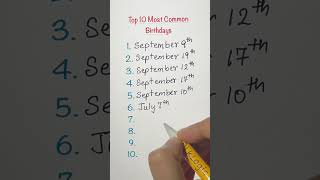 Top 10 Most Common
Birthdays
1. September 9th
2. September 19th
3. September 12th
4. September 17th
5. September 10th
6. July 7th
7.
8.
9.
10.
12th
17th
10th